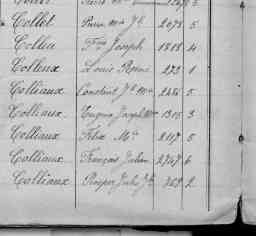 Collet Pierre Mie Jh 2078 5
Collin Fois Joseph 1818 4
Colleux Louis René 273 1
Colliaux Constant Jh Mie 2456 5
Colliaux Eugène Joseph Mie 1315 3
Colliaux Félix Mie 2117 5
Colliaux François Julien 2747 6
Colliaux Prosper Jules Jh 769 2